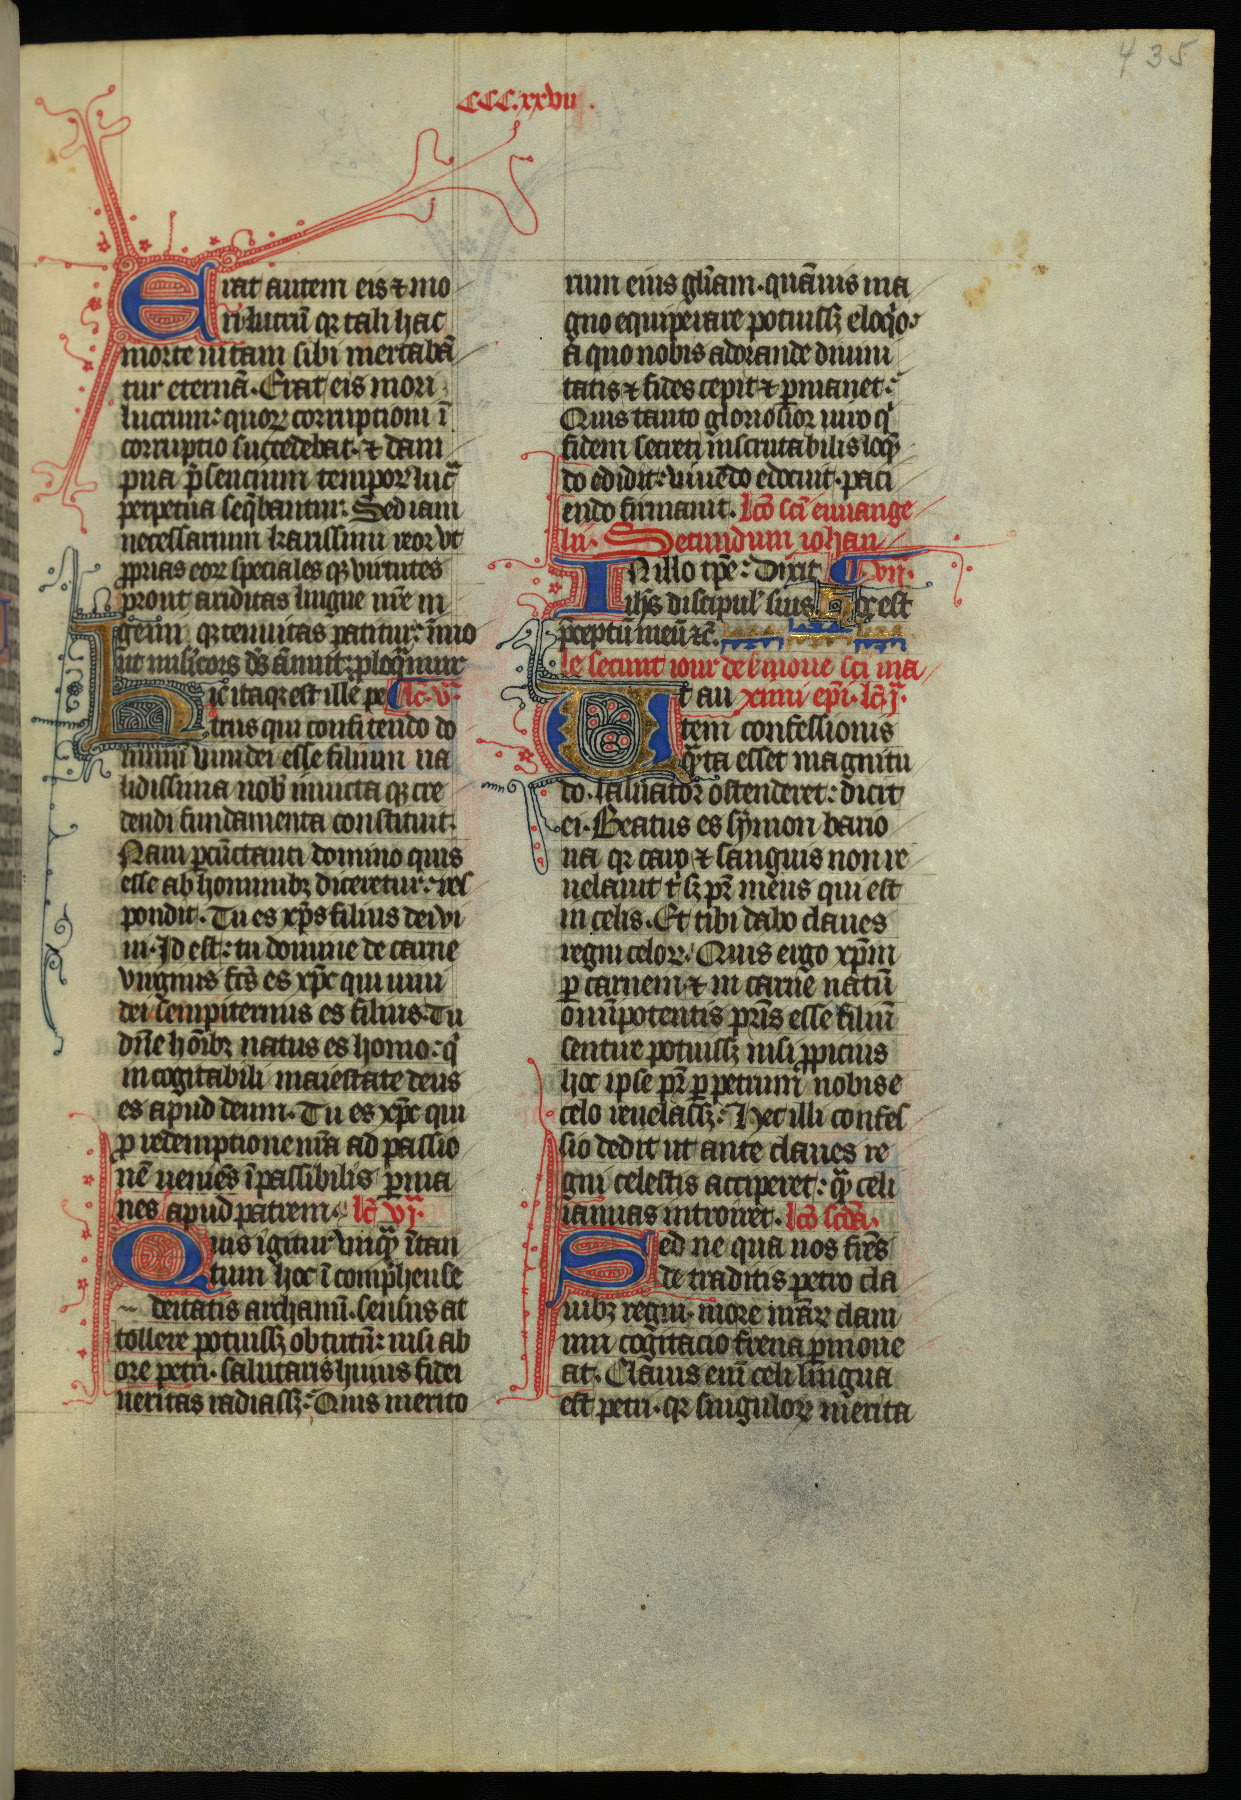 435
CCC.xxvii.
Erat autem eis ⁊ mo
ri lucrũ qr tali hac
morte uitam sibi mercabã
tur eternã. Erat eis mori
lucrum: quoꝝ corruptioni ĩ
corruptio succedebat. ⁊ dam
pna p̃sencium tempoꝝ luc̃
perpetua seq̃bantur. Sed iam
necessarium karissimi reor vt
ꝓprias eoꝝ speciales qꝫ uirtutes
prout ariditas lingue nr̃e in
genii qꝫ tenuitas patitur: ĩmo
ut mis̃icors dñs ãnuit: ploq̃mur
Hic itaqꝫ est ille pe lc̃. v.ᵃ
trus qui confitendo do
minũ uiui dei esse filium ua
lidissima nob̾ inuicta qꝫ cre
dendi fundamenta constituit.
Nam ꝑcũctanti domino quis
esse ab hominibꝫ diceretur: res
pondit. Tu es xp̃s filius dei vi
ui. Id est: tu domine de carne
virginis fc̃s es xp̃c qui uiui
dei sempiternus es filius. Tu
dñe hõibꝫ natus es homo: qͥ
incogitabili maiestate deus
es apud deum. Tu es xp̃c qui
ꝓ redemptione nr̃a ad passio
nẽ ueniẽs ĩpassibilis ꝑma
nes apud patrem. lc̃ vjᵃ.
Quis igitur vnqᷓ ĩtan
tum hoc ĩcomp̃hense
deitatis archanũ. sensus at
tollere potuissꝫ obtutũ: nisi ab
ore petri. salutaris huius fidei
ueritas radiassꝫ: Quis merito
rum eius gl̃iam. quãuis ma
gno equiperare potuissꝫ eloq̾o:
a quo nobis adorande diuini
tatis ⁊ fides cepit ⁊ ꝑmanet:
Quis tanto gloriosior uiro qͥ
fidem secreti inscrutabilis loqñ
do edidit: uiuẽdo edocuit. paci
endo firmauit. lc̃o sc̃i euuange
lii. Secundum iohan
IN illo tp̃e: Dixit C. vii.
ih̃s discipul̾ suis Hoc est
p̃ceptũ meũ ⁊c̃.
le secunt iour de l
Ut au xĩmi ep̃i. lc̃ j.ᵃ
tem confessionis
qᷓta esset magnitu
do. saluator ostenderet: dicit
ei. Beatus es symon bario
na qr caro ⁊ sanguis non re
uelauit tͥ sꝫ pr̃ meus qui est
in celis. Et tibi dabo claues
regni celoꝝ. Quis ergo xp̃m
ꝑ carnem. ⁊ in carne natũ
om̃ipotentis pr̃is esse filiũ
sentire potuissꝫ nisi ꝓpicius
hoc ipse pr̃ ꝑ petrum nobis e
celo reuelassꝫ: Hec illi confes
sio dedit ut ante claues re
gni celestis acciperet: qᷓ celi
ianuas introiret. lc̃o sc̃da.
Sed ne qua nos fr̃es
de traditis petro cla
uibꝫ regni. more nr̃aꝝ claui
um cogitacio terrena ꝑmoue
at. Clauis eni celi lingua
est petri. qr singuloꝝ merita